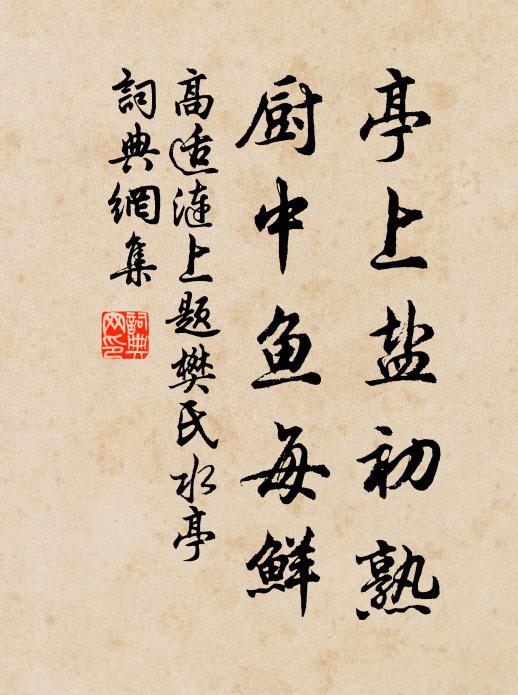 亭上盐初熟
厨中鱼每鲜
高适涟上题樊氏水亭
詞典網集
詞典
网印